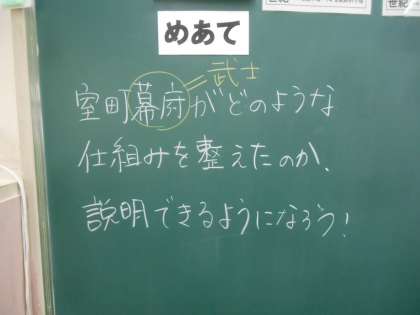 めあて
=武士
室町幕府がどのような
仕組みを整えたのか、
説明できるようになろう!